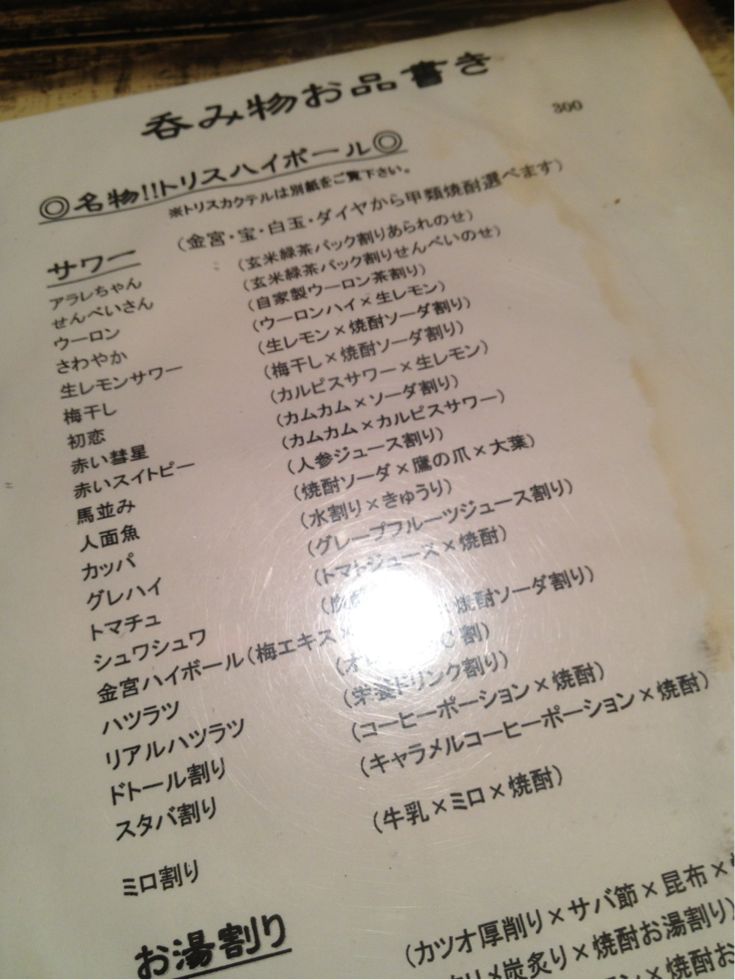 呑み物お品書き
◎名物!!トリスハイボール◎ 300
※トリスカクテルは別紙をご覧下さい。
サワー (金宮・宝・白玉・ダイヤから甲類焼酎選べます)
アラレちゃん (玄米緑茶パック割りあられのせ)
せんべいさん (玄米緑茶パック割りせんべいのせ)
ウーロン (自家製ウーロン茶割り)
さわやか (ウーロンハイ×生レモン)
生レモンサワー (生レモン×焼酎ソーダ割り)
梅干し (梅干し×焼酎ソーダ割り)
初恋 (カルピスサワー×生レモン)
赤い彗星 (カムカム×ソーダ割り)
赤いスイトピー (カムカム×カルピスサワー)
馬並み (人参ジュース割り)
人面魚 (焼酎ソーダ×鷹の爪×大葉)
カッパ (水割り×きゅうり)
グレハイ (グレープフルーツジュース割り)
トマチュ (トマトジュース×焼酎)
シュワシュワ
金宮ハイボール(梅エキス× 焼酎ソーダ割り)
ハツラツ (オ C割)
リアルハツラツ (栄養ドリンク割り)
ドトール割り (コーヒーポーション×焼酎)
スタバ割り (キャラメルコーヒーポーション×焼酎)
ミロ割り (牛乳×ミロ×焼酎)
お湯割り
(カツオ厚削り×サバ節×昆布×
炭炙り×焼酎お湯割り)
×焼酎お